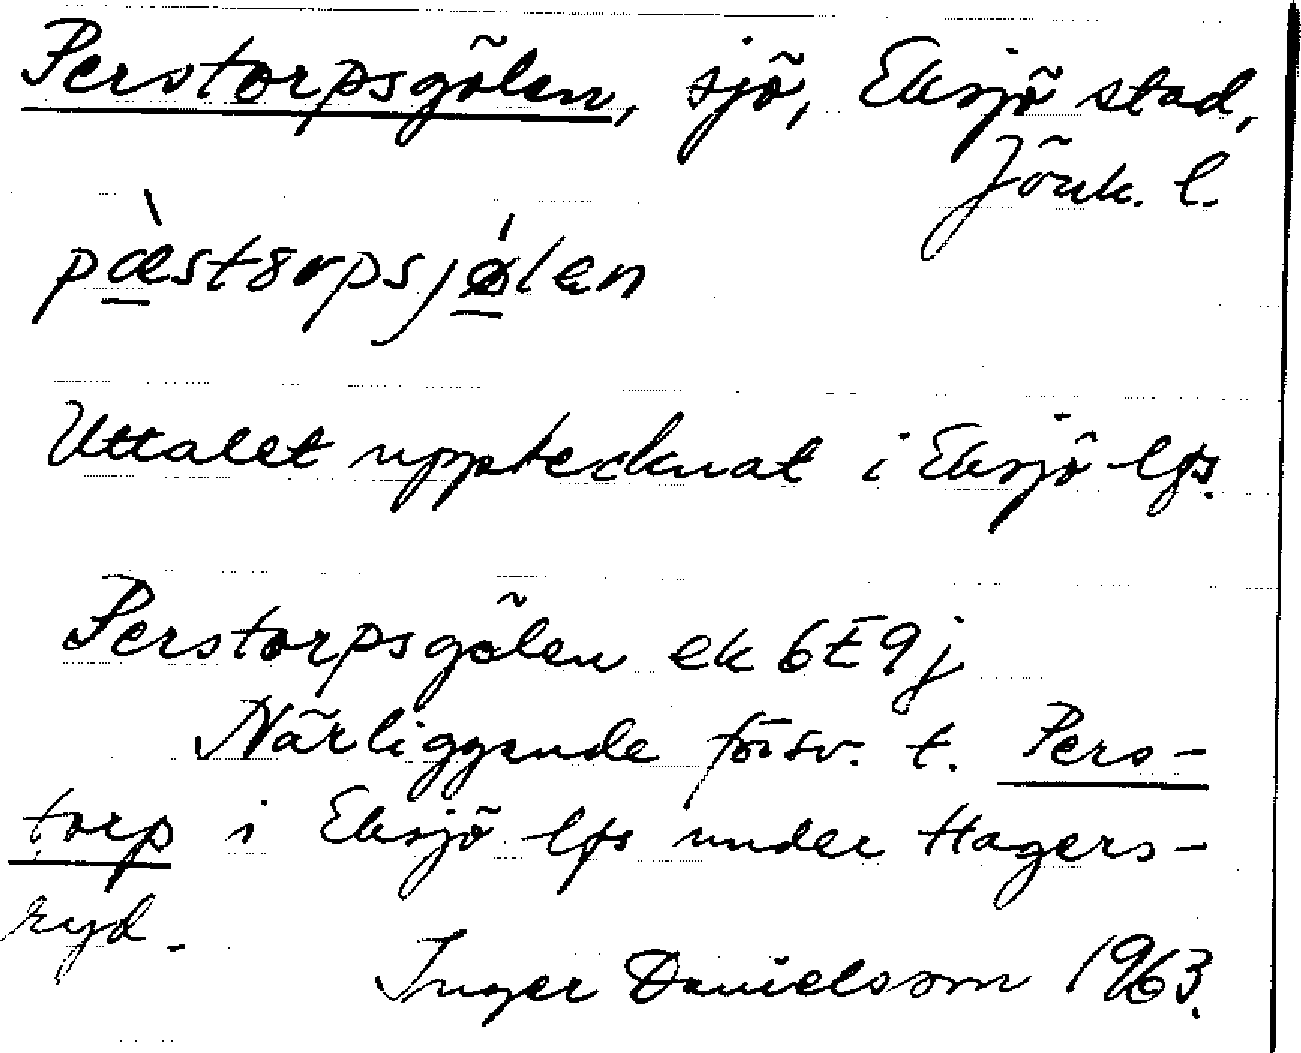 Perstorpsgölen, sjö, Eksjö stad,
Jönk. l.
pæ̀stɔrpsjǿlen
Uttalet upptecknat i Eksjö lfs.
Perstorpsgölen ek 6E9j
Närliggande försv. t. Pers-
torp i Eksjö lfs under Hagers-
ryd.
Inger Danielsson 1963.